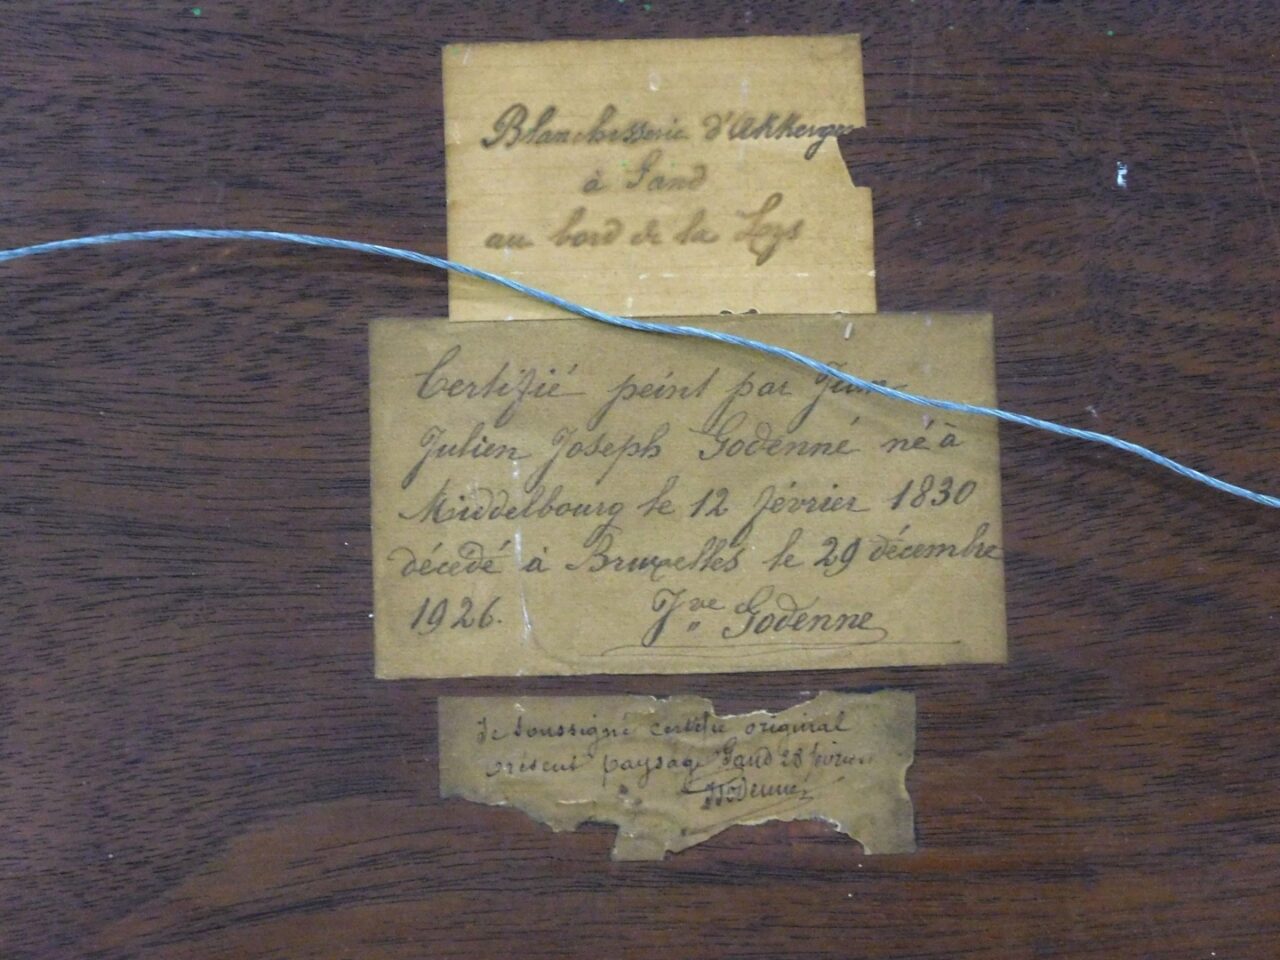 Blanchisserie d'Akkerge
à Gand
au bord de la Lys
Certifié peint par Jean
Julien Joseph Godenné né à
Middelbourg le 12 février 1830
décédé à Bruxelles le 29 décembre
1926. Vve Godenne
Je soussigné certifie original
présent paysage Gand 28 février
Godenné